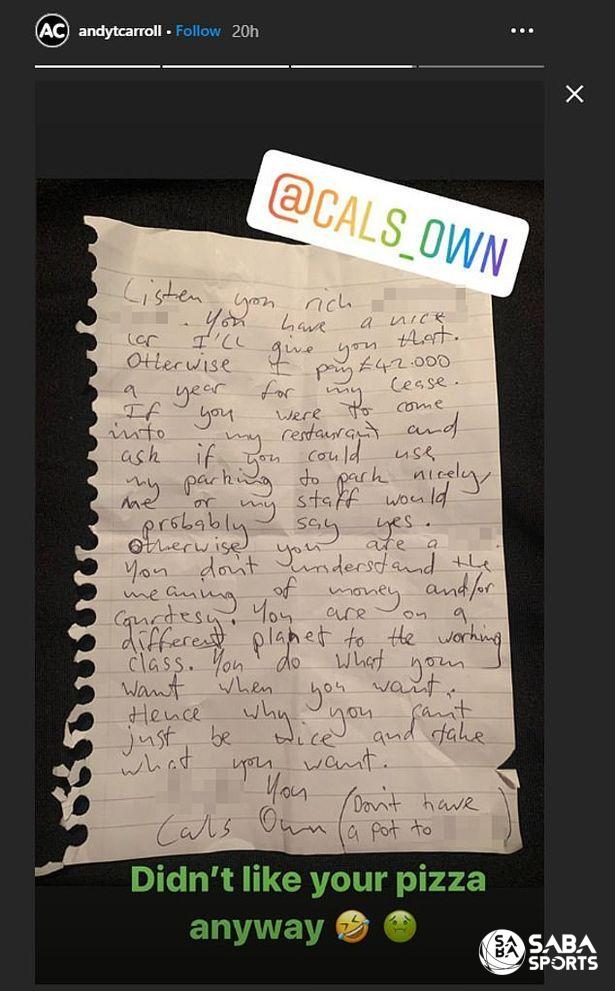 AC andytcarroll • Follow 20h
@CALS_OWN
Listen you rich
. You have a nice
car I'll give you that.
Otherwise I pay £42.000
a year for my lease.
If you were to come
into my restaurant and
ask if you could use
my parking to park nicely
me or my staff would
probably say yes.
Otherwise you are a
You don't understand the
meaning of money and/or
courtesy. You are on a
different planet to the working
class. You do what your
want when you want.
Hence why you can't
just be nice and take
what you want.
You
Cals Own (Don't have
a pot to )
Didn't like your pizza
anyway 🤣 🤢
SABA
SABA
SPORTS